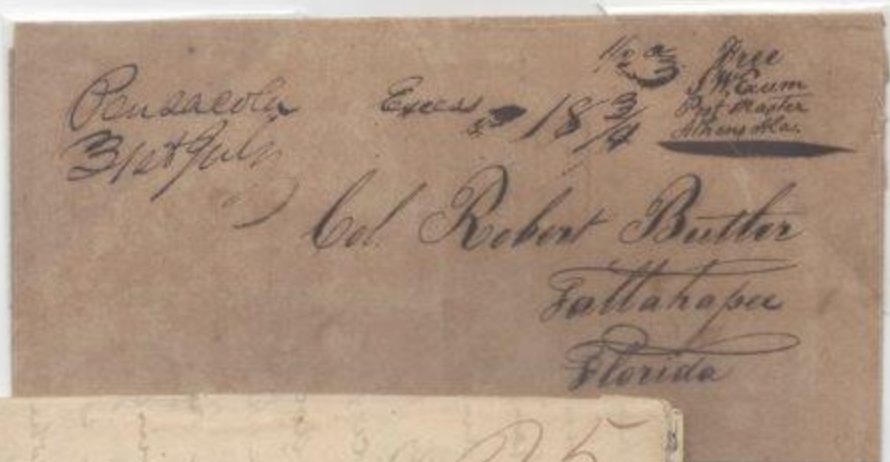 Pensacola
31st July
Excess
18 3/4
Free
Exum
Post Master
Athens Ala.
Col Robert Butler
Tallahaſsee
Florida
25